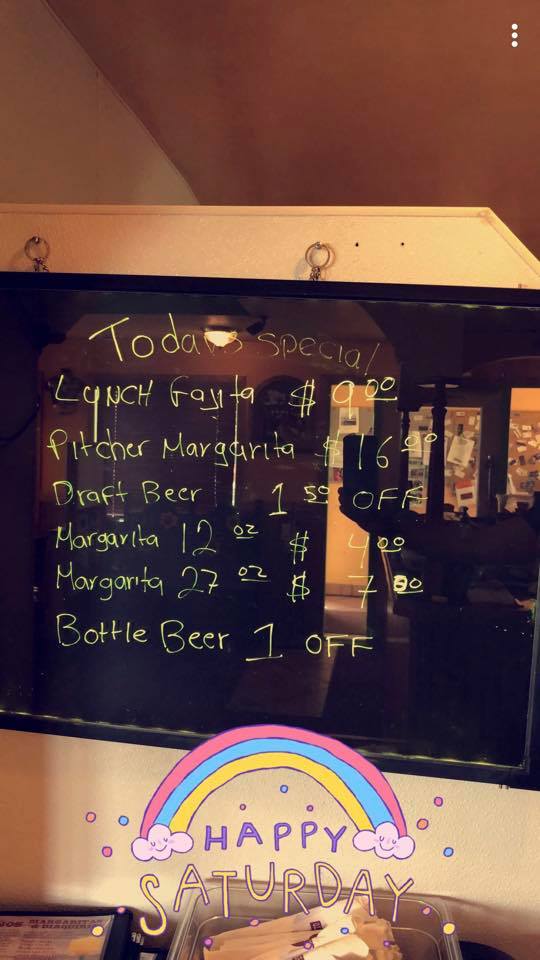 Today's special
LyNCH Fajita $ 9.00
Pitcher Margarita $16.00
Draft Beer 1.50 OFF
Margarita 12 oz $ 4.00
Margarita 27 oz $ 7.00
Bottle Beer 1 OFF
HAPPY
SATURDAY
MARGARITAS
& DIAQUIRI